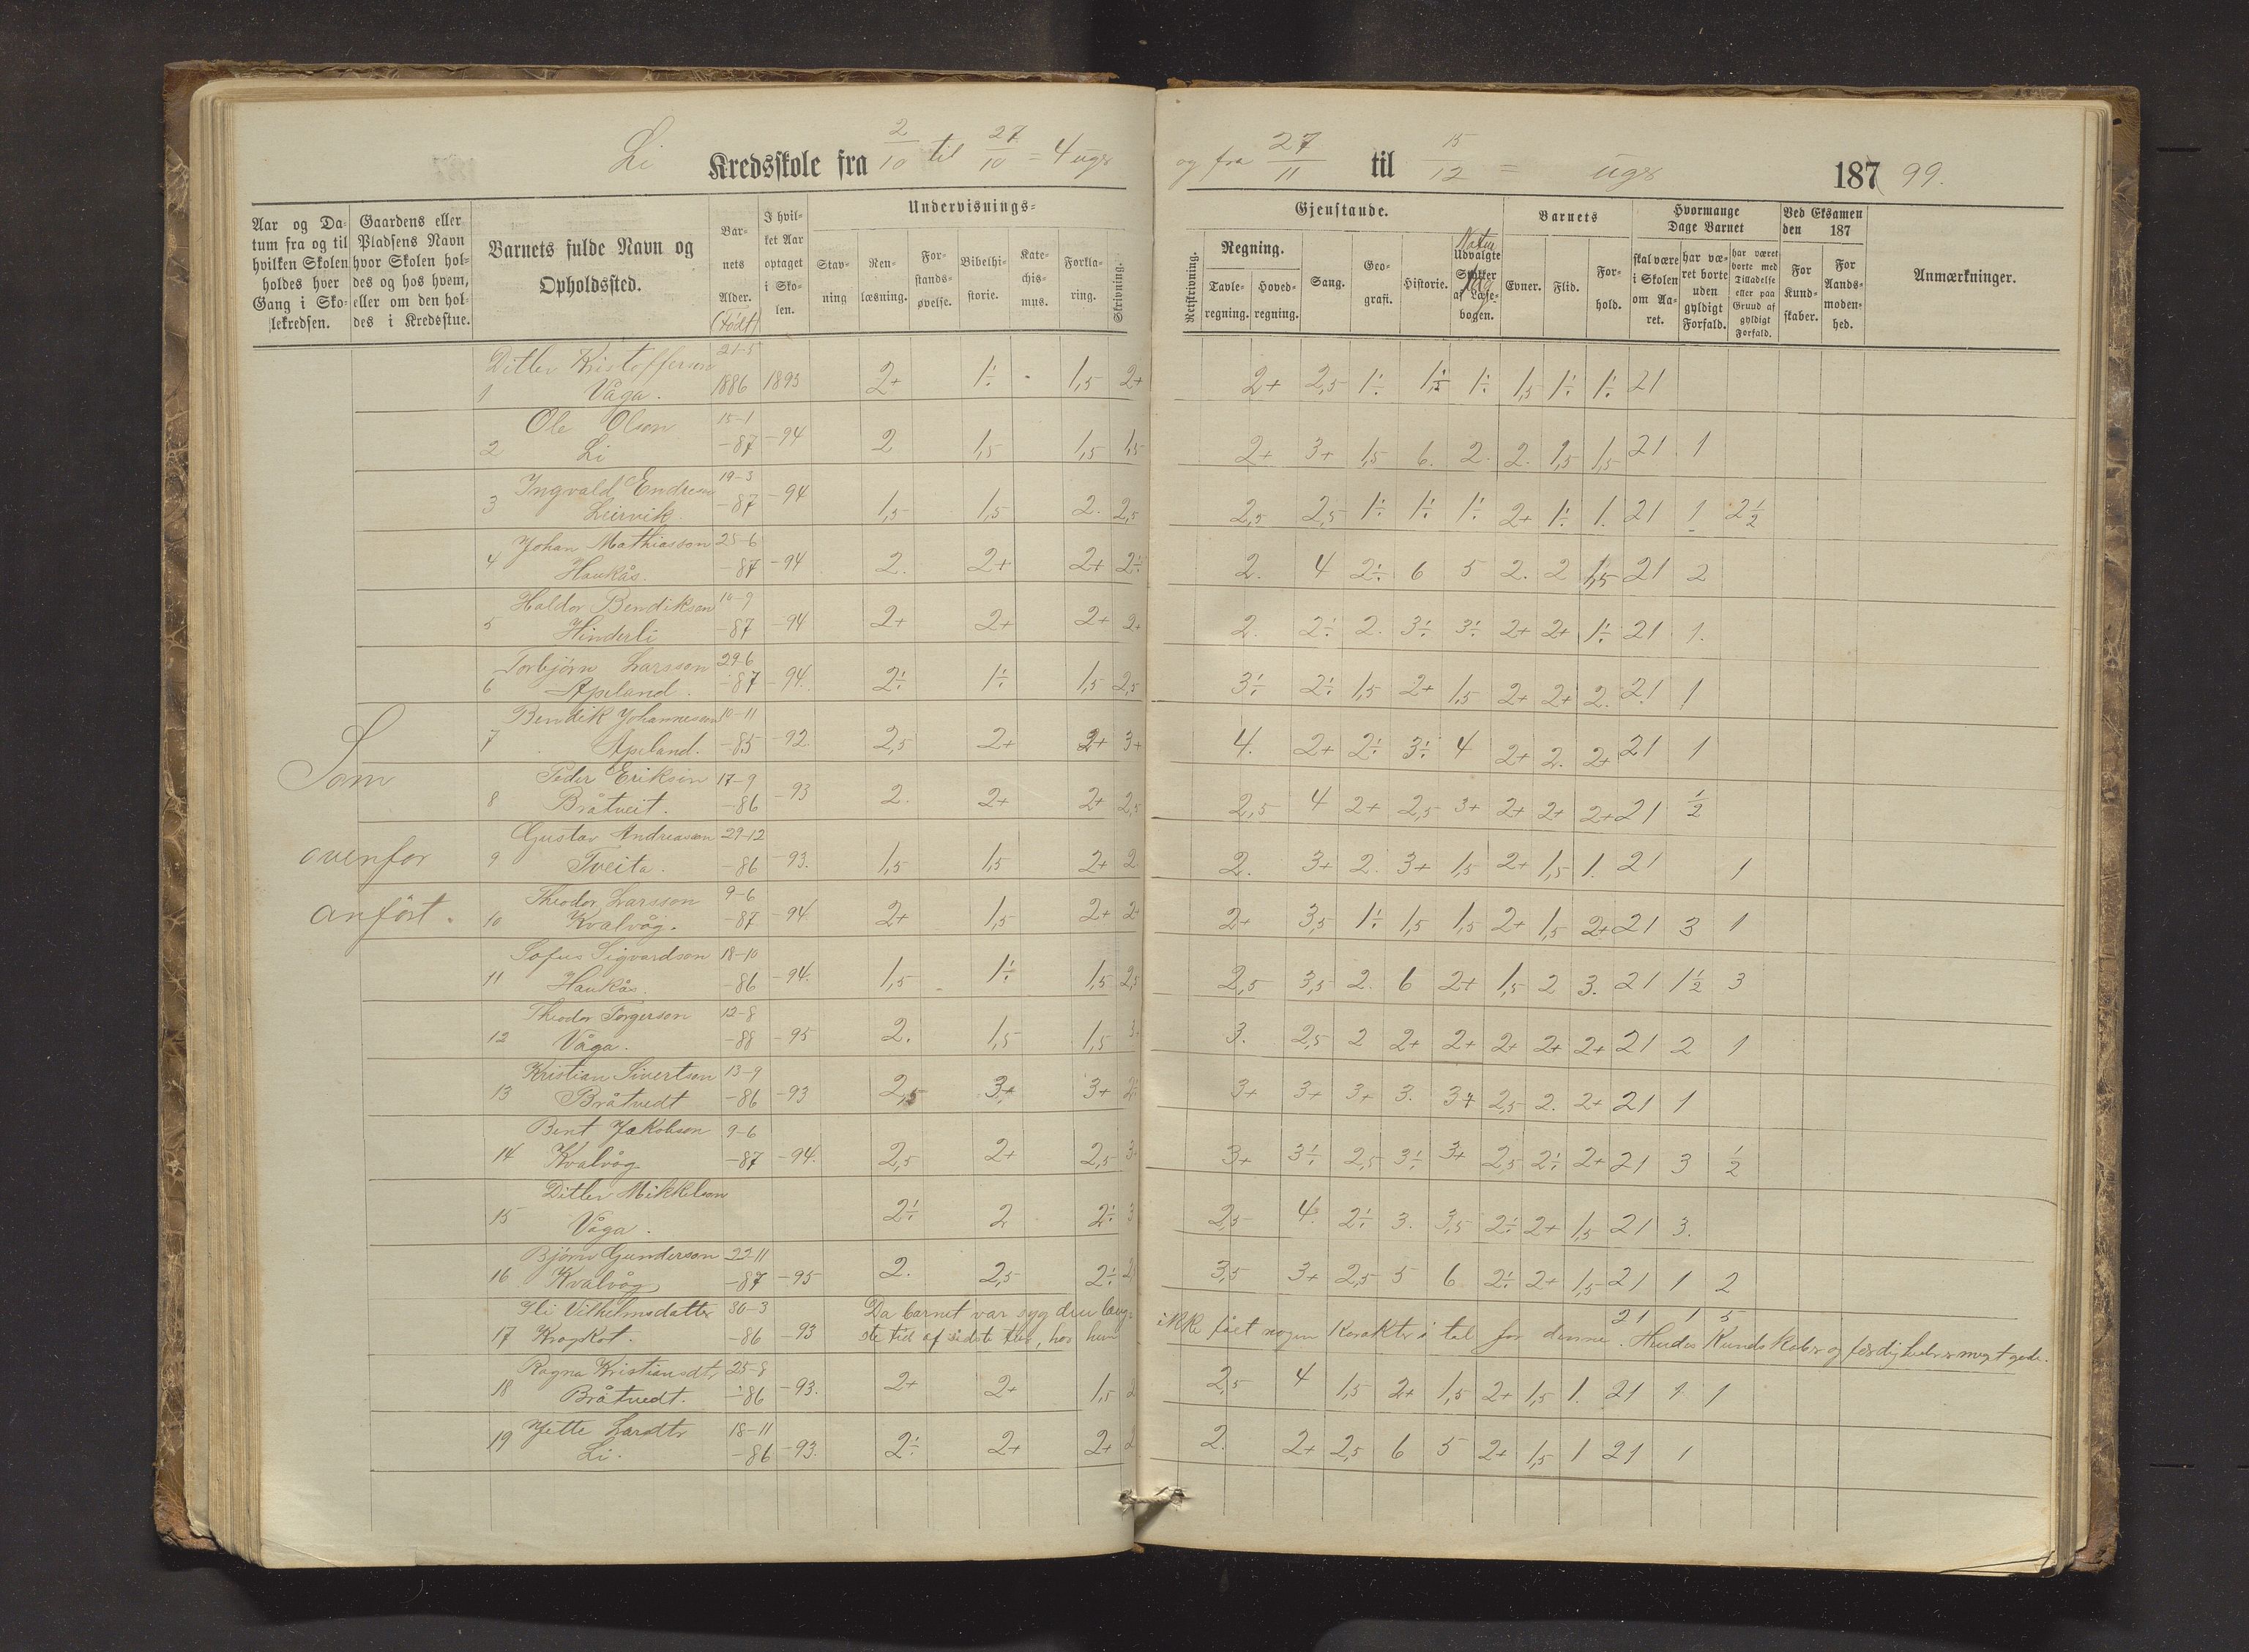 Li Kredsskole fra 2/10 til 27/10 = 4 uger
og fra 27/11 til 15/12 = uger 187 99.
Aar og Da-
tum fra og til
hvilken Skolen
holdes hver
Gang i Sko-
lekredsen.
Gaardens eller
Pladsens Navn
hvor Skolen hol-
des og hos hvem,
eller om den hol-
des i Kredsstue.
Barnets fulde Navn og
Opholdssted.
Bar-
nets
Alder.
(født)
I hvil-
ket Aar
optaget
i Sko-
len.
Undervisnings-
Stav-
ning
Ren-
læsning.
For-
stands-
øvelse.
Bibelhi-
storie.
Kate-
chis-
mus.
Forkla-
ring.
Skrivning.
Gjenstande.
Retskrivning.
Regning.
Tavle-
regning.
Hoved-
regning.
Sang.
Geo-
grafi.
Historie.
Natur
Udvalgte
Stykker
af Læse-
bogen.
Barnets
Evner.
Flid.
For-
hold.
Hvormange
Dage Barnet
skal være
i Skolen
om Aa-
ret.
har væ-
ret borte
uden
gyldigt
Forfald.
har været
borte med
Tilladelse
eller paa
Grund af
gyldigt
Forfald.
Ved Eksamen
den 187
For
Kund-
skaber.
For
Aands-
moden-
hed.
Anmærkninger.
Som
ovenfor
anført.
Ditlev Kristofferson 21-5
1 Våga. 1886 1893 2+ 1÷ 1,5 2+ 2+ 2,5 1÷ 1,5 1÷ 1,5 1÷ 1÷ 21
Ole Olson 15-1
2 Li -87 -94 2 1,5 1,5 1,5 2+ 3+ 1,5 6. 2. 2. 1,5 1,5 21 1
Ingvald Endreson 19-3
3 Leirvik -87 -94 1,5 1,5 2. 2,5 2,5 2,5 1÷ 1÷ 1÷ 2+ 1÷ 1. 21 1 2½
Johan Mathiasson 25-6
4 Haukås. -87 -94 2. 2+ 2+ 2÷ 2. 4 2÷ 6 5 2. 2 1,5 21 2
Haldor Bendikson 10-9
5 Hinderli -87 -94 2+ 2+ 2+ 2+ 2. 2÷ 2. 3÷ 3÷ 2+ 2+ 1÷ 21 1.
Torbjörn Larsson 29-6
6 Apeland. -87 -94. 2÷ 1÷ 1,5 2,5 3÷ 2÷ 1,5 2+ 1,5 2+ 2+ 2. 21 1
Bendik Johanneson 10-11
7 Apeland. -85 -92 2,5 2+ 2+ 3+ 4. 2+ 2÷ 3÷ 4 2+ 2. 2+ 21 1
Peder Erikson 17-9
8 Bråtveit. -86 -93 2. 2+ 2+ 2,5 2,5 4 2+ 2,5 3+ 2+ 2+ 2+ 21 ½
Gustav Andreason 29-12
9 Tveita. -86 -93. 1,5 1,5 2+ 2 2. 3+ 2. 3+ 1,5 2+ 1,5 1. 21 1
Theodor Larsson 9-6
10 Kvalvåg. -87 -94 2+ 1,5 2+ 2+ 2+ 3,5 1÷ 1,5 1,5 2+ 1,5 2+ 21 3 1
Sofus Sigvardson 18-10
11 Haukås. -86 -94. 1,5 1÷ 1,5 2,5 2,5 3,5 2. 6 2+ 1,5 2 3. 21 1½ 3
Theodor Torgerson 12-8
12 Våga. -88 -95 2. 1,5 1,5 3. 2,5 2 2+ 2+ 2+ 2+ 2+ 21 2 1
Kristian Sivertson 13-9
13 Bråtvedt -86 -93 2,5 3+ 3+ 3+ 3+ 3+ 3. 3+ 2,5 2. 2+ 21 1
Bent Jakobson 9-6
14 Kvalvåg. -87 -94. 2,5 2+ 2,5 3+ 3÷ 2,5 3÷ 3+ 2,5 2÷ 2+ 21 3 ½
Ditlev Mikkelson
15 Våga. 2÷ 2 2÷ 3 2,5 4. 2÷ 3. 3,5 2÷ 2+ 1,5 21 3.
Bjørn Gunderson 22-11
16 Kvalvåg -87 -95 2. 2,5 2÷ 3,5 3+ 2,5 5 6 2÷ 2+ 1,5 21 1 2
Vilhelmsdatter 30-3 Da barnet var syg den læng- 21 1 5
17 -86 -93 ste tid af sidste har hun ikke fået nogen karakter i tal for denne. Hendes kundskaber og færdigheder er meget gode.
Ragna Kristiansdtr. 25-8
18 Bråtvedt. -86 -93. 2+ 2+ 1,5 2 2,5 4 1,5 2+ 1,5 2+ 1,5 1. 21 1 1
Jette Larsdtr 18-11
19 Li. -86 -93. 2÷ 2+ 2+ 2 2. 2+ 2,5 6 5 2+ 1,5 1 21 1